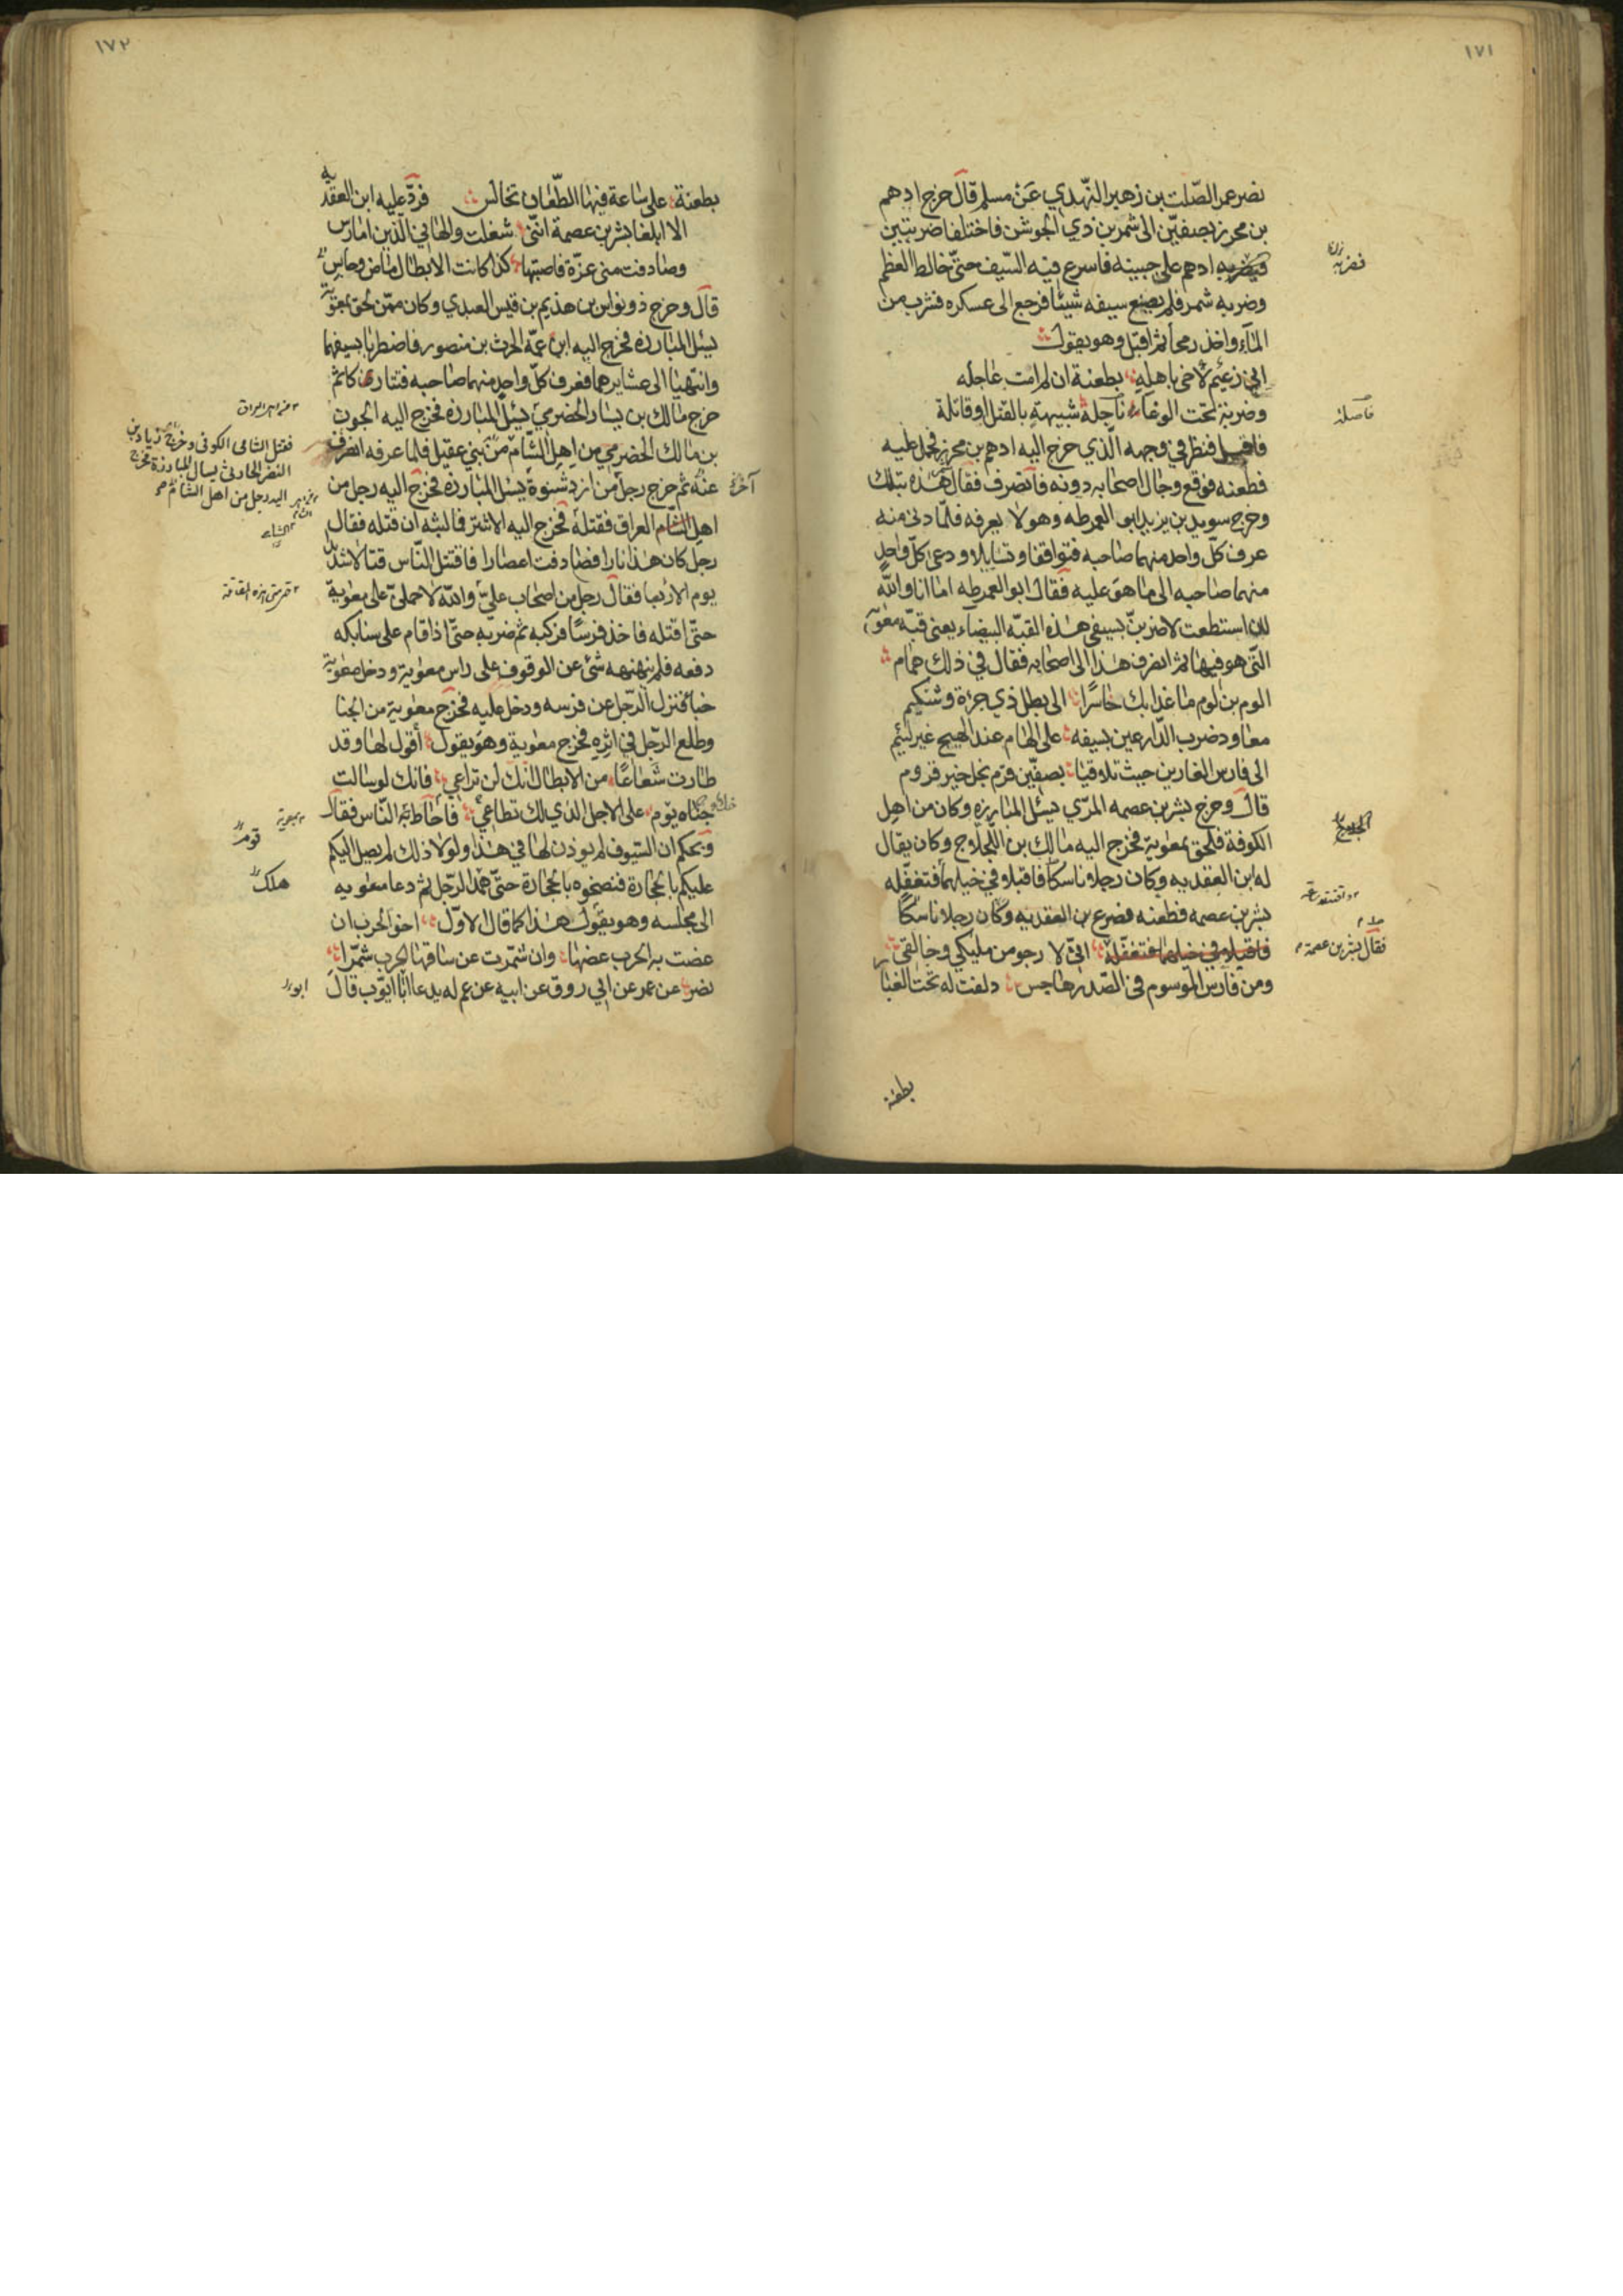 ١٧١
نصر عمر الصّلت بن زهير النّهدي عن مسلم قال خرج ادهم
بن محرز بصفيّن الى شمر بن ذي الجوشن فاختلفا ضربتين
فيضربه ادهم على جبينه فاسرع فيه السّيف حتّى خالط العظم
فضربه
وضربه شمر فلم يصنع سيفه شيئا فرجع الى عسكره فشرب من
المآء واخذ رمحا ثم اقبل وهو يقول
اني زعيم لاخي باهله بطعنة ان لم امت عاجله
وضربة تحت الوغاء آجلة شبيهة بالقتل او قاتلة
فاصله
فاقبل فنظر في وجهه الّذي خرج اليه ادهم بن محرز فحمل عليه
فطعنه فوقع وحال اصحابه دونه فانصرف فقال هذه بتلك
وخرج سويد بن يزيد ابو العمرطه وهو لا يعرفه فلمّا دنى منه
عرف كلّ واحد منهما صاحبه فتواقفا وتسايلا ودعى كلّ واحد
منهما صاحبه الى ما هو عليه فقال ابو العمرطه اما انا والله
لئن استطعت لاضربنّ بسيفي هذه القبّه البيضآء يعني قبّه معوية
التّى هو فيها ثم انصرف هذا الى اصحابه فقال في ذلك همام
الوم بن لوم ما غدا بك خاسرًا الى بطل ذي جرءة وشكيم
معاود ضرب الدّارعين بسيفه على الهام عند الهيج غير لئيم
الى فارس الغارين حيث تلاقيا بصفّين قرم نجل خير قروم
قال وخرج بشر بن عصمه المرّي يسئل المبارزه وكان من اهل
الكوفة فلحق بمعوية فخرج اليه مالك بن اللّجلاج وكان يقال
له ابن العقديه وكان رجلا ناسكا فاقبلا في خيلهما فتغفّله
بشر بن عصمه فطعنه فصرع بن العقديه وكان رجلا ناسكًا
فاقبلا في خيلهما فتغفّله اني لا رجو من مليكي وخالقي
فقال بشر بن عصمة
ومن فارس الموسوم في الصّدر هاجس دلفت له تحت الغبا
بطعنة
١٧٢
بطعنة على ساعة فيها الطّعان تخالس فردّ عليه ابن العقديه
الا ابلغا بشر بن عصمة انّني شغلت والهاني الّذين امارس
وصادفت منى غرّة فاصبتها كذا كانت الابطال ماض وحابس
قال وخرج ذو نواس بن هذيم بن قيس العبدي وكان ممّن لحق بمعوية
يسئل المبارزه فخرج اليه ابن عمّه الحرث بن منصور فاضطربا بسيفهما
وانتهيا الى عشايرهما فعرف كلّ واحد منهما صاحبه فتتاركا ثم
خرج مالك بن يسار الحضرمي يسئل المبارزه فخرج اليه الجون
بن مالك الحضرمي من اهل الشّام من بني عقيل فلما عرفه انصرف
فقتل الشامى الكوفى وخرج زياد بن
النضر الحارثى يسال المبارزة فخرج
اليه رجل من اهل الشام
عنه ثم خرج رجل من ازد شنوة يسئل المبارزه فخرج اليه رجل من
آخر
اهل الشّام العراق فقتله فخرج اليه الاشتر فالبثه ان قتله فقال
رجل كان هذا نارا فصادفت اعصارا فاقتتل النّاس قتالا شديد
يوم الاربعا فقال رجل من اصحاب عليّ والله لاحملنّ على معوية
حتّى اقتله فاخذ فرسًا فركبه ثم ضربه حتّى اذا قام على سنابكه
دفعه فلم ينهنهه شئ عن الوقوف على راس معوية ودخل معوية
خبا فنزل الرّجل عن فرسه ودخل عليه فخرج معوية من الخبا
وطلع الرّجل في اثره فخرج معوية وهو يقول أقول لها وقد
طارت شعاعًا من الابطال انك لن تراعي فانك لو سالت
حياه يوم على الاجل الذي لك تطاعي فاحاط به النّاس فقال
ويحكم ان السّيوف لم يوذن لها في هذا ولولا ذلك لم يصل اليكم
عليكم بالحجارة فنضخوه بالحجارة حتّى همد الرّجل ثم دعا معويه
هلك
الى مجلسه وهو يقول هذا كما قال الاوّل اخو الحرب ان
عضت به الحرب عضها وان شمّرت عن ساقها الحرب شمّرا
نصر عن عمر عن ابي روق عن ابيه عن عم له يدعا ابا ايّوب قال
ابو